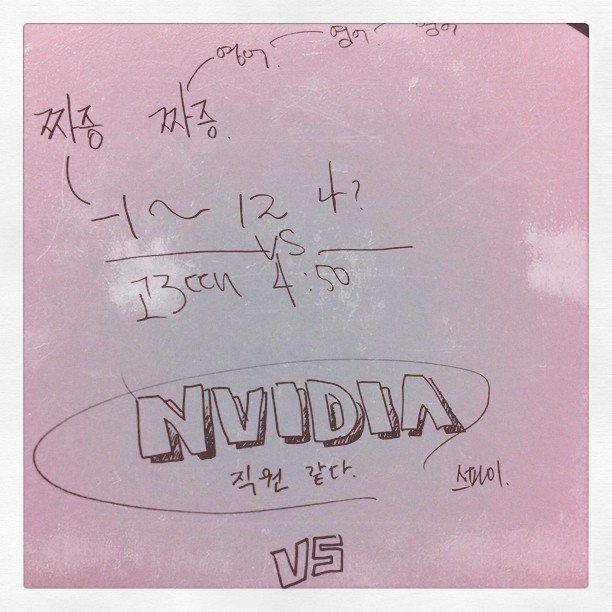 영어. 영어. 영어
짜증 짜증.
-1 ~ 12 4?
VS
고3때 4:50
NVIDIA
직원 같다.
스파이.
VS